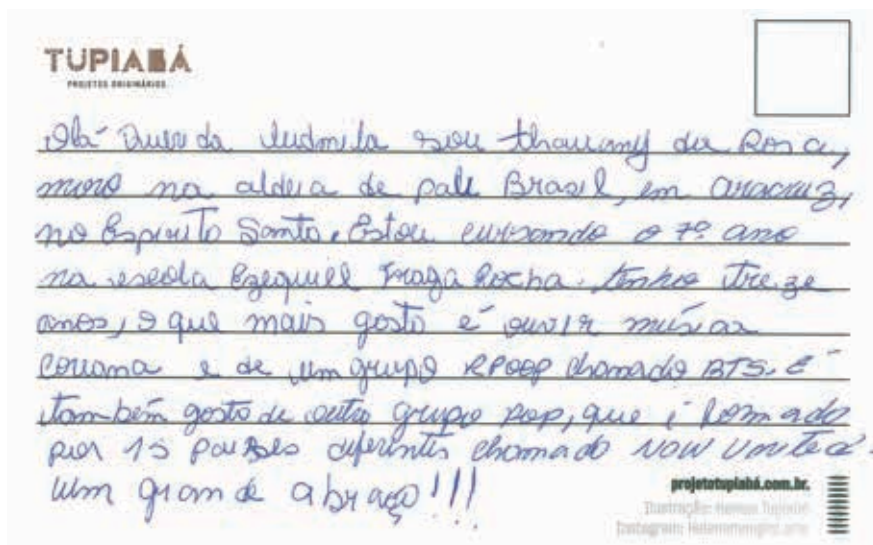 TUPIABÁ
PROJETOS ORIGINÁRIOS
Olá Querida Ludmila sou thauany da Rosa,
moro na aldeia de pau Brasil, em aracruz,
no Espirito Santo. Estou cursando o 7º ano
na escola Ezequiel Fraga Rocha. tenho treze
anos, o que mais gosto é ouvir músicas
coreana e de um grupo KPOOP chamado BTS. E
também gosto de outro grupo pop, que é formado
por 15 paises diferentes chamado NOW United.
Um grande abraço!!!
projetotupiabá.com.br.
Ilustração:
Instagram: